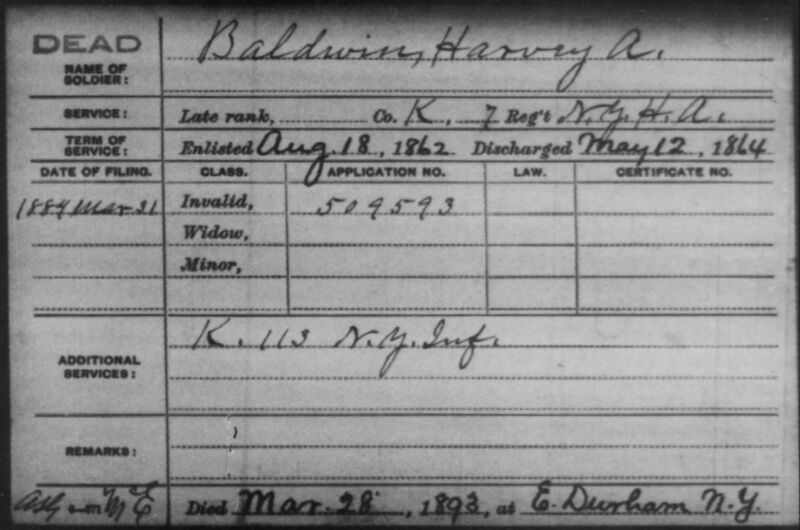 DEAD
Baldwin, Harvey A.
NAME OF
SOLDIER:
SERVICE: Late rank, Co. K, 7 Reg't N.Y.H.A.
TERM OF
SERVICE: Enlisted Aug. 18, 1862 Discharged May 12, 1864
DATE OF FILING. CLASS. APPLICATION NO. LAW. CERTIFICATE NO.
1884 Mar 31 Invalid, 509593
Widow,
Minor,
K. 113 N.Y. Inf.
ADDITIONAL
SERVICES:
REMARKS:
Died Mar. 28, 1893, at E. Durham N.Y.